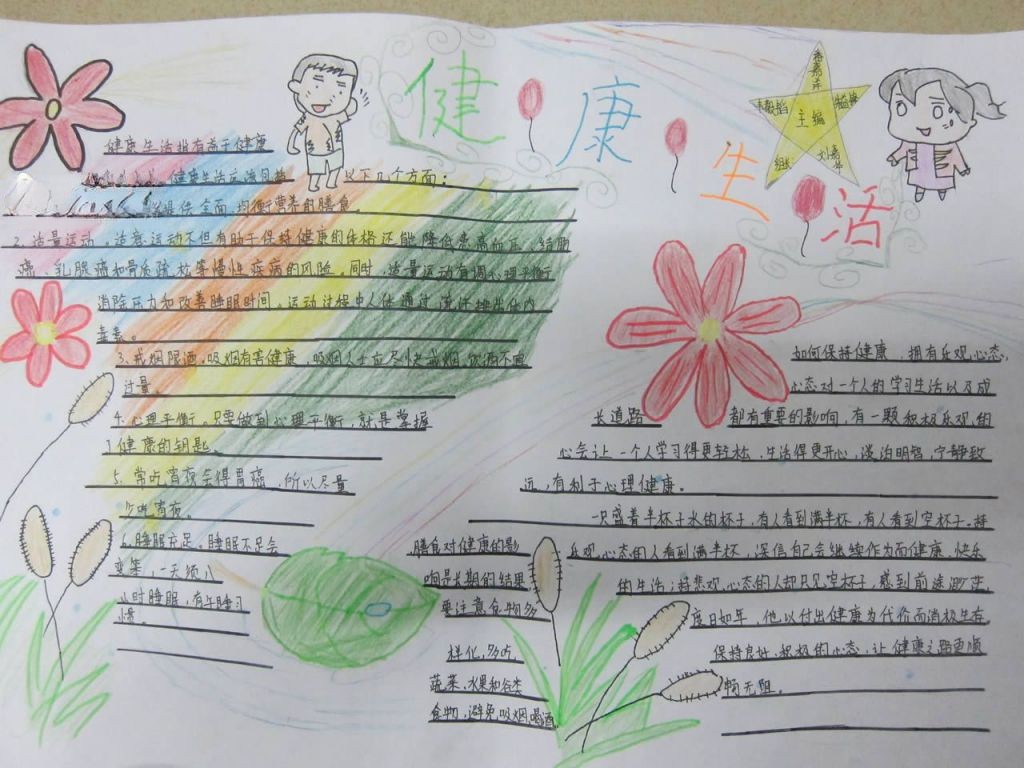 健康生活
主编
组长
健康生活批有高于健康
健康生活应该包括
以下几个方面：
提供全面均衡营养的膳食。
2.适量运动。适度运动不但有助于保持健康的体格还能降低患高血压、结肠
癌、乳腺癌和骨质疏松等慢性疾病的风险。同时，适量运动有调心理平衡
消除压力和改善睡眠时间。运动过程中人体通过流汗排出体内
毒素。
3.戒烟限酒。吸烟有害健康，吸烟人士应尽快戒烟，饮酒不宜
过量。
4.心理平衡。只要做到心理平衡，就是掌握
了健康的钥匙。
5.常吃宵夜会得胃癌，所以尽量
少吃宵夜。
6.睡眠充足。睡眠不足会
变笨，一天须八
小时睡眠，有午睡习
惯。
膳食对健康的影
响是长期的结果
要注意食物多
样化，多点
蔬菜、水果和谷类
食物，避免吸烟喝酒
如何保持健康，拥有乐观心态，
心态对一个人的学习生活以及成
长道路 都有重要的影响，有一颗积极乐观的
心会让一个人学习得更轻松，生活得更开心，淡泊明智，宁静致
远，有利于心理健康。
一只盛着半杯子水的杯子，有人看到满半杯，有人看到空杯子。持
乐观心态的人看到满半杯，深信自己会继续作为而健康、快乐
的生活；持悲观心态的人却只见空杯子，感到前途渺茫
度日如年，他以付出健康为代价而消极生存
保持良好、积极的心态，让健康之路更顺
畅无阻。